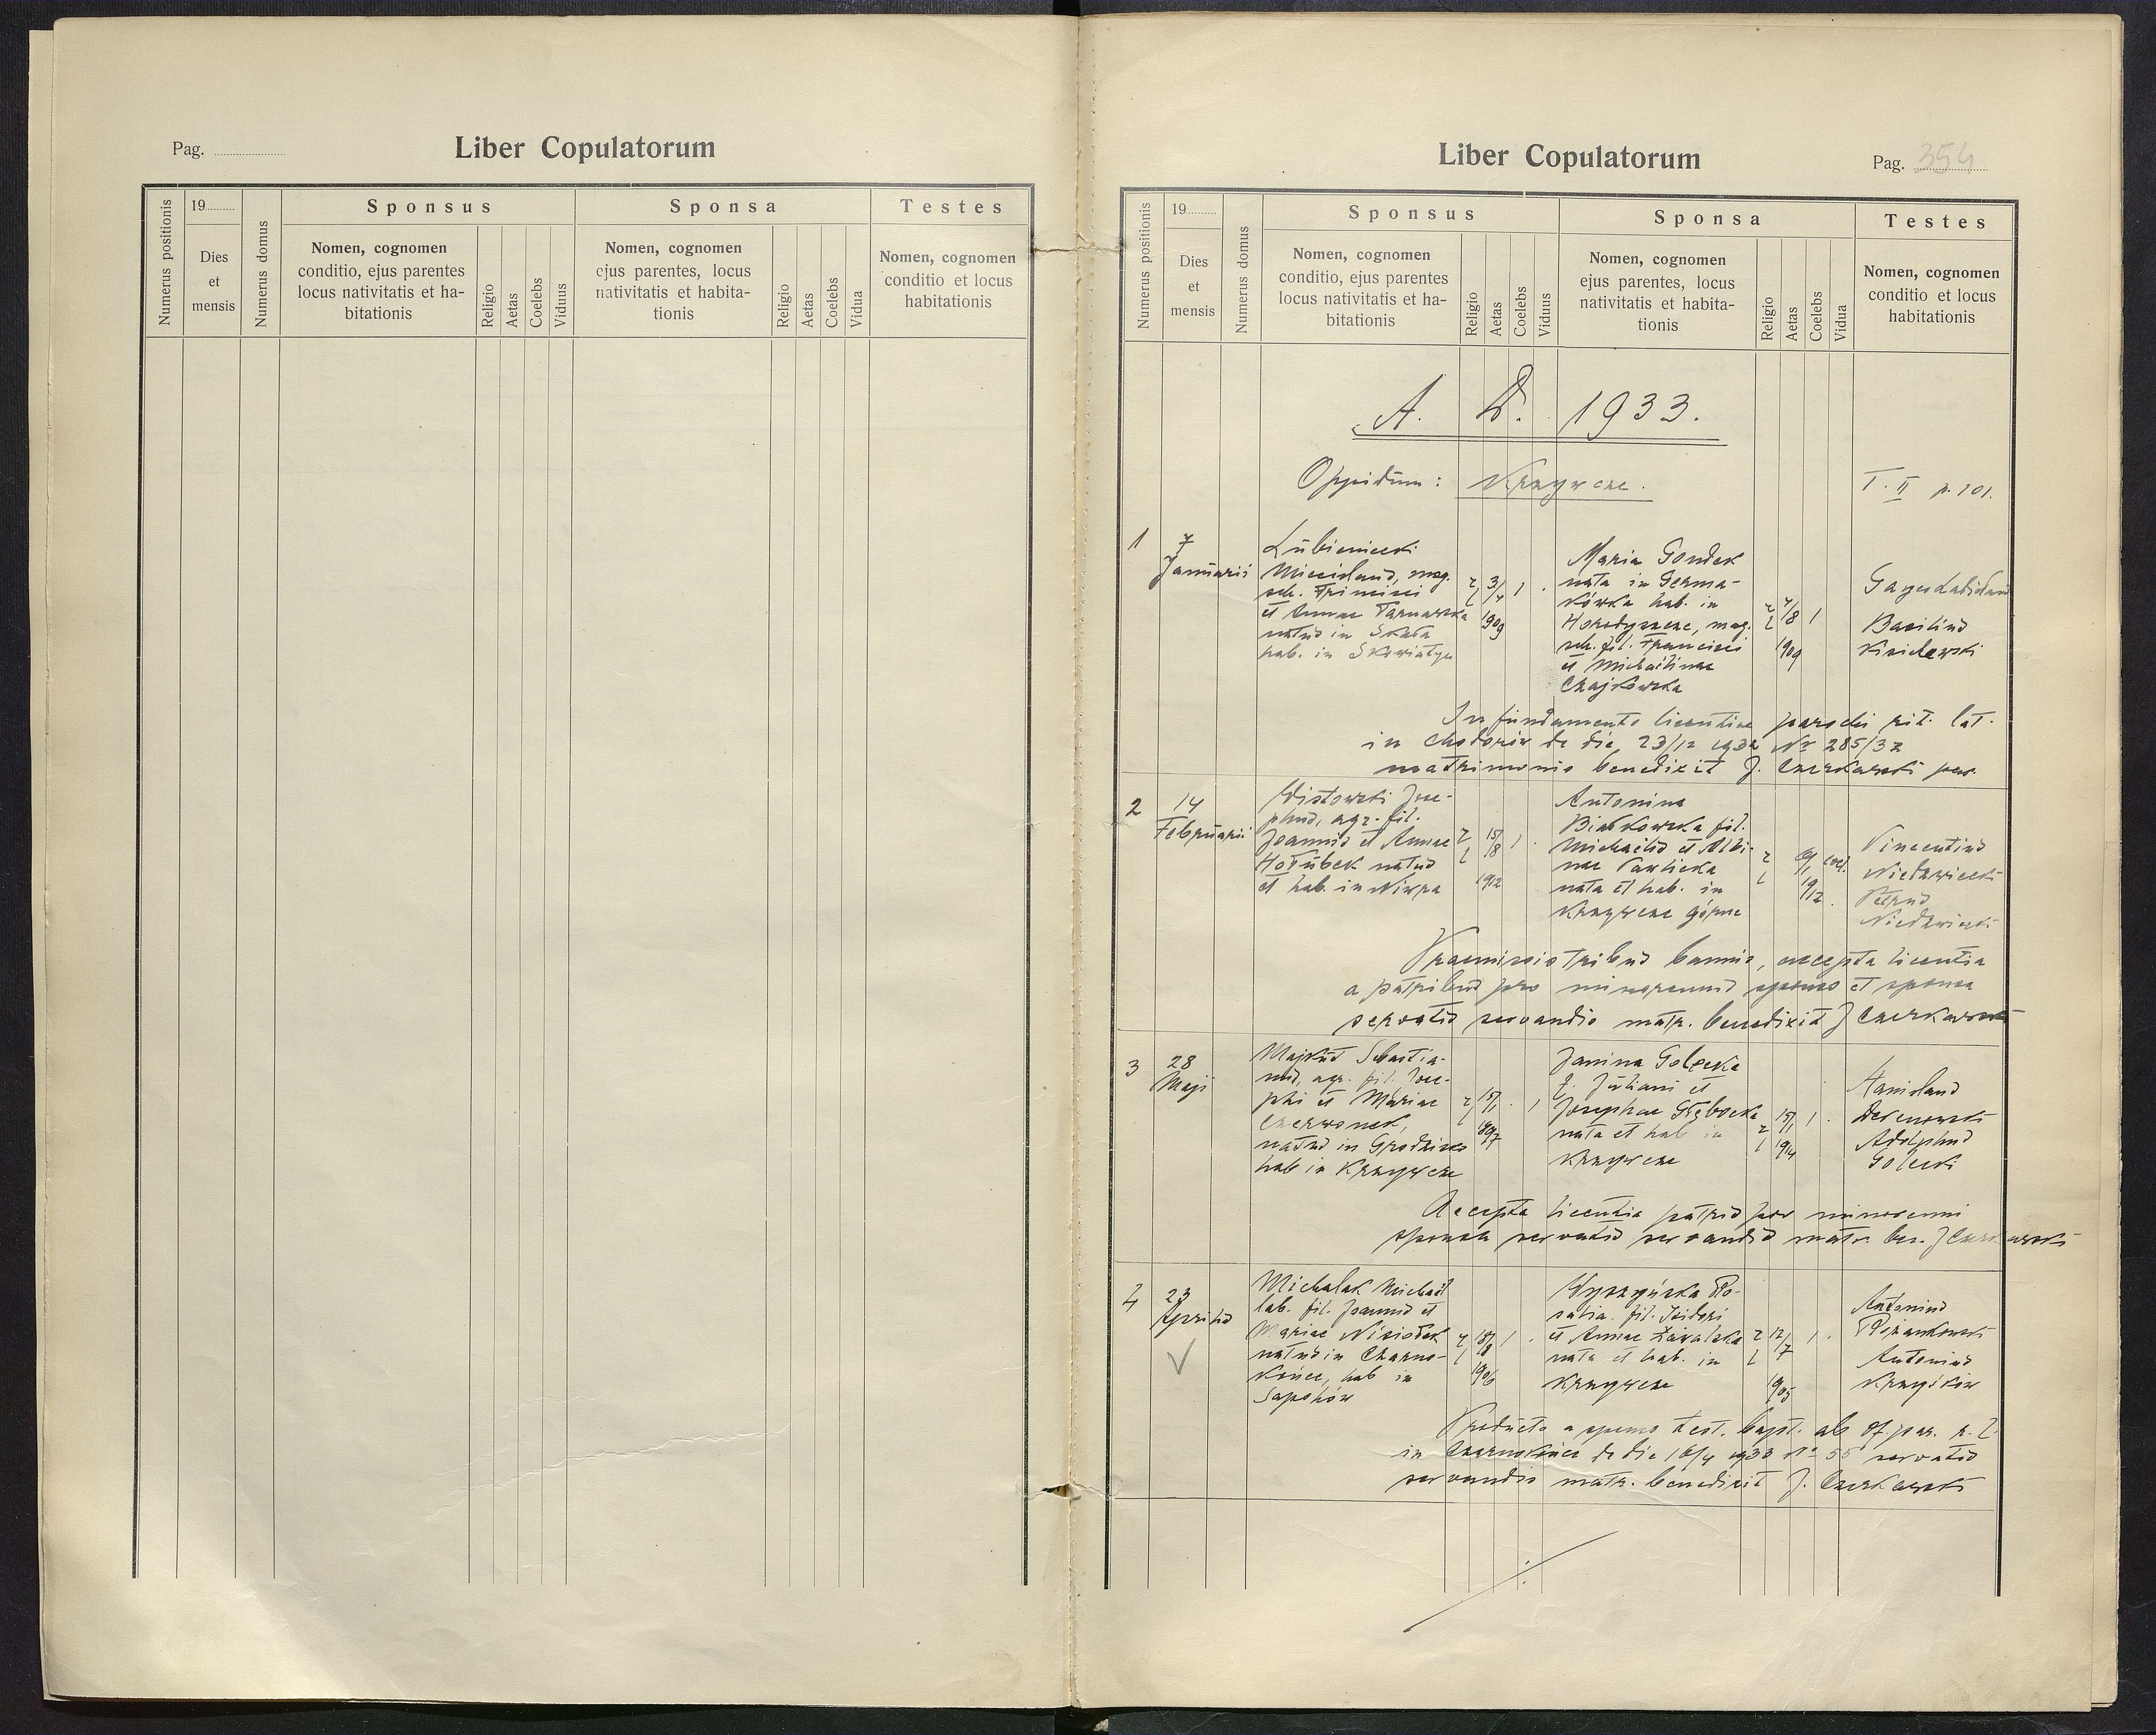 Pag.
Liber Copulatorum
Numerus positionis
19
Dies
et
mensis
Numerus domus
Sponsus
Nomen, cognomen
conditio, ejus parentes
locus nativitatis et ha-
bitationis
Religio
Aetas
Coelebs
Viduus
Sponsa
Nomen, cognomen
ejus parentes, locus
nativitatis et habita-
tionis
Religio
Aetas
Coelebs
Vidua
Testes
Nomen, cognomen
conditio et locus
habitationis
Liber Copulatorum
Pag. 354
Numerus positionis
19
Dies
et
mensis
Numerus domus
Sponsus
Nomen, cognomen
conditio, ejus parentes
locus nativitatis et ha-
bitationis
Religio
Aetas
Coelebs
Viduus
Sponsa
Nomen, cognomen
ejus parentes, locus
nativitatis et habita-
tionis
Religio
Aetas
Coelebs
Vidua
Testes
Nomen, cognomen
conditio et locus
habitationis
A. D. 1933.
Oppidum: Krzywcze.
T. II p. 101.
1
7
Januarii
Lubieniecki
Miecislaus, mag.
sch.
et Annae Tarnawska
natus in Skała
hab. in Skowiatyn
r l
3/4
1909
1
Maria Gondek
nata in Germa-
kówka hab. in
Horodyszcze, mag.
sch. fil. Francisci
et Michailinae
Czajkowska
r l
4/8
1909
1
Basilius
Kisielewski
In fundamento licentiae parochi rit. lat.
in Chodorów de die 23/12 1932 No 285/32
matrimonio benedixit J. Czerkawski par.
2
14
Februarii
Wistowski Jose-
phus, agr. fil.
Joannis et Annae
Hołubek natus
et hab. in Niwra
r l
15/8
1912
1
Antonina
Białkowska fil.
Michaelis et Albi-
nae Pawlicka
nata et hab. in
Krzywcze górne
r l
1912
coel.
Vincentius
Niedzwiecki
Petrus
Niedzwiecki
Praemissis tribus bannis, accepta licentia
a patribus pro minorennis sponso et sponsa
servatis servandis matr. benedixit J Czerkawski
3
28
Maji
Majkut Sebastia-
nus, agr. fil. Jose-
phi et Mariae
Czerwonek,
natus in Grodzisko
hab in Krzywcze
r l
15/1
897
1
Janina Golecka
f. Juliani et
Josephae Głębocka
nata et hab in
Krzywcze
r l
15/1
1914
1
Stanislaus
Adolphus
Golecki
Accepta licentia patris pro minorenni
sponsa servatis servandis matr. ben. J Czerkawski
4
23
Aprilis
Michalak Michael
lab. fil. Joannis et
Mariae Nisiołek
natus in Czarno-
końce, hab in
Sapohów
r l
18/8
1906
1
Wyszyńska Ro-
salia fil. Isidori
et Annae Zawalska
nata et hab. in
Krzywcze
r l
12/7
1905
1
Antonius
Antonius
Krzyśków
Producto a sponso test. bapt. ab of. par. r. l.
in Czarnokońce de die 16/4 1933 No 55 servatis
servandis matr. benedixit J. Czerkawski